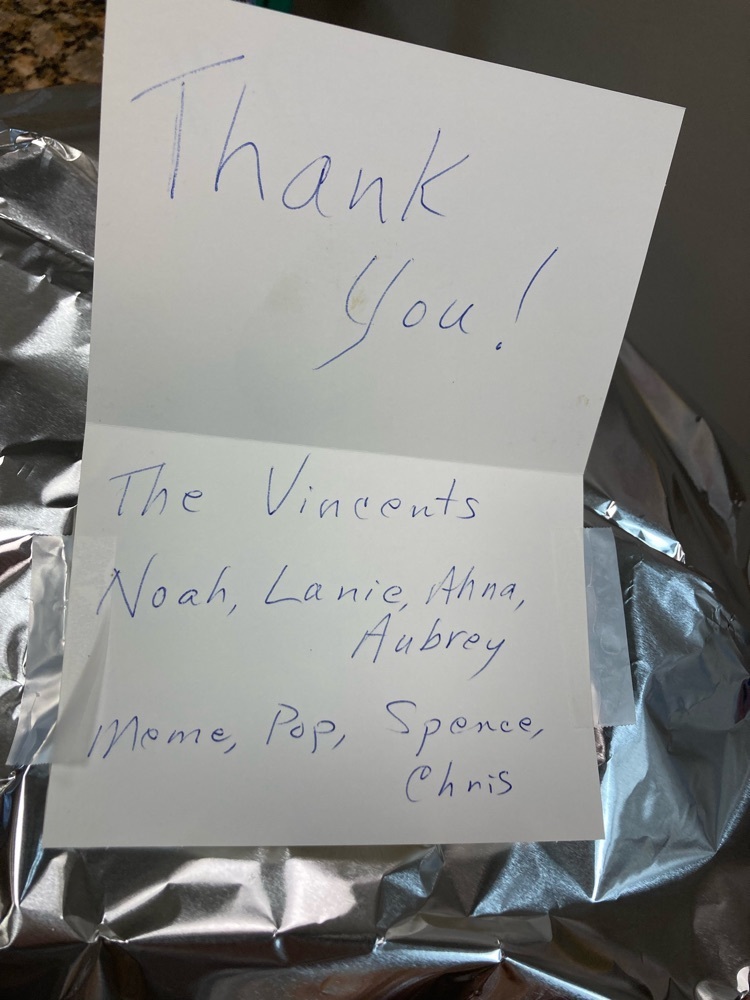 Thank
You!
The Vincents
Noah, Lanie, Ahna,
Aubrey
Meme, Pop, Spence,
Chris